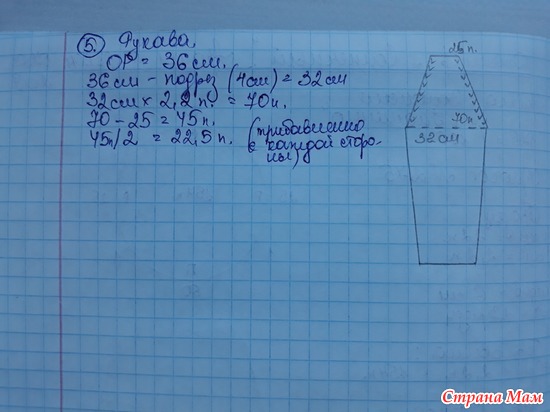 5. Рукава.
ОР = 36 см.
36 см - подрез (4 см) = 32 см
32 см х 2,2 п. = 70 п.
70 - 25 = 45 п.
45 п/2 = 22,5 п. (прибавленно
с каждой сторо-
ны)
25 п.
70 п
32 см
Страна Мам